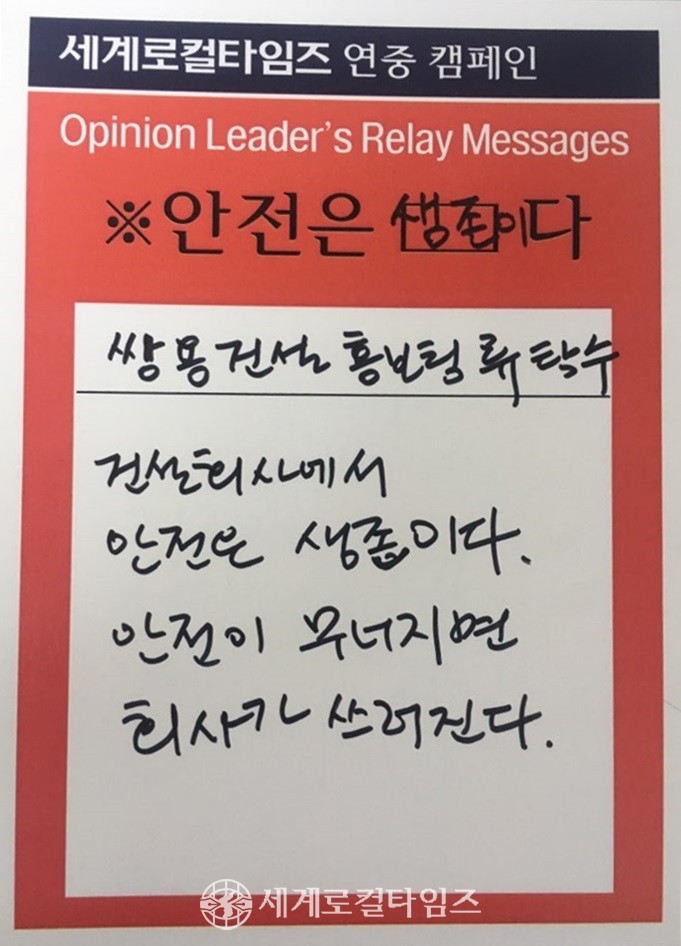 세계로컬타임즈 연중 캠페인
Opinion Leader's Relay Messages
※안전은 생존이다
쌍용건설 홍보팀 류탁수
건설회사에서
안전은 생존이다.
안전이 무너지면
회사가 쓰러진다.
세계로컬타임즈